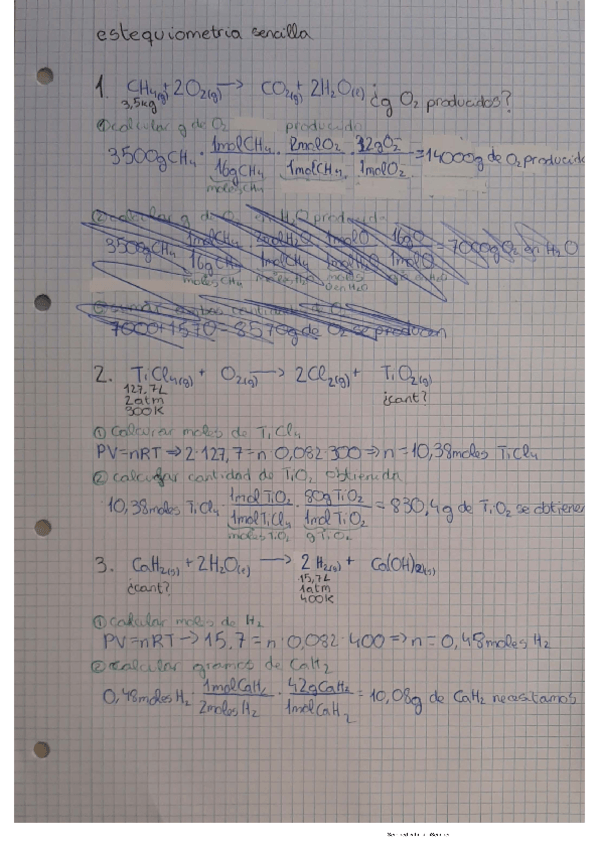 estequiometria sencilla
1. CH4(g) + 2O2(g) → CO2(g) + 2H2O(l) ¿g O2 producidos?
3,5kg
① calcular g de O2 producido
3500gCH4 · 1molCH4/16gCH4 · 2molO2/1molCH4 · 32gO2/1molO2 = 14000g de O2 producido
moles CH4
② calcular g de O2 en H2O producido
3500gCH4 · 1molCH4/16gCH4 · 2molH2O/1molCH4 · 1molO/1molH2O · 16gO/1molO = 7000gO2 en H2O
moles CH4 moles H2O moles O en H2O
7000+1570=8570g de O2 se producen
2. TiCl4(g) + O2(g) → 2Cl2(g) + TiO2(g)
127,7L ¿cant?
2atm
300K
① Calcular moles de TiCl4
PV=nRT → 2·127,7=n·0,082·300 ⇒ n=10,38moles TiCl4
② calcular cantidad de TiO2 obtenida
10,38moles TiCl4 · 1molTiO2/1molTiCl4 · 80gTiO2/1molTiO2 = 830,4g de TiO2 se obtienen
moles TiO2 gTiO2
3. CaH2(s) + 2H2O(l) → 2H2(g) + Ca(OH)2(s)
¿cant? 15,7L
1atm
400K
① calcular moles de H2
PV=nRT → 15,7=n·0,082·400 ⇒ n=0,48moles H2
② calcular gramos de CaH2
0,48moles H2 · 1molCaH2/2moles H2 · 42gCaH2/1molCaH2 = 10,08g de CaH2 necesitamos